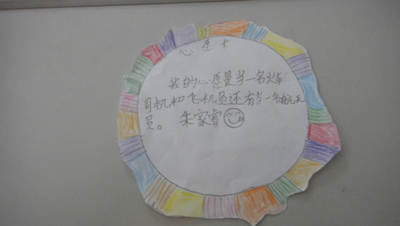 心愿卡
我的心愿是当一名火车
司机和飞机员还有当一名航天
员。 朱家雪